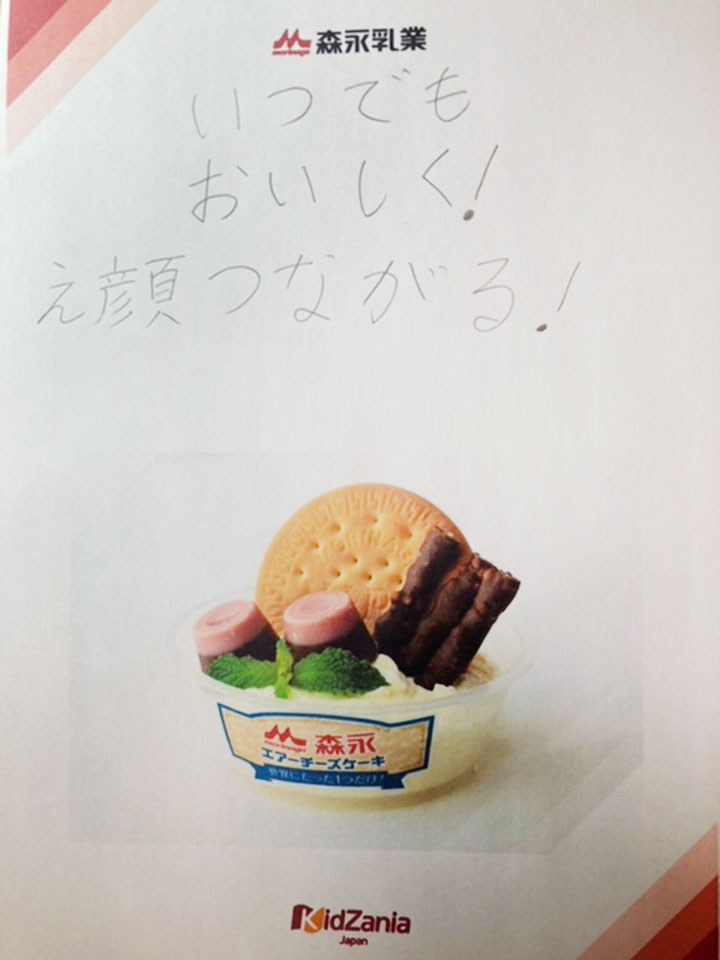 morinaga 森永乳業
いつでも
おいしく!
え顔つながる!
MORINAGA
morinaga 森永
エアーチーズケーキ
世界にたった1つだけ!
KidZania
Japan